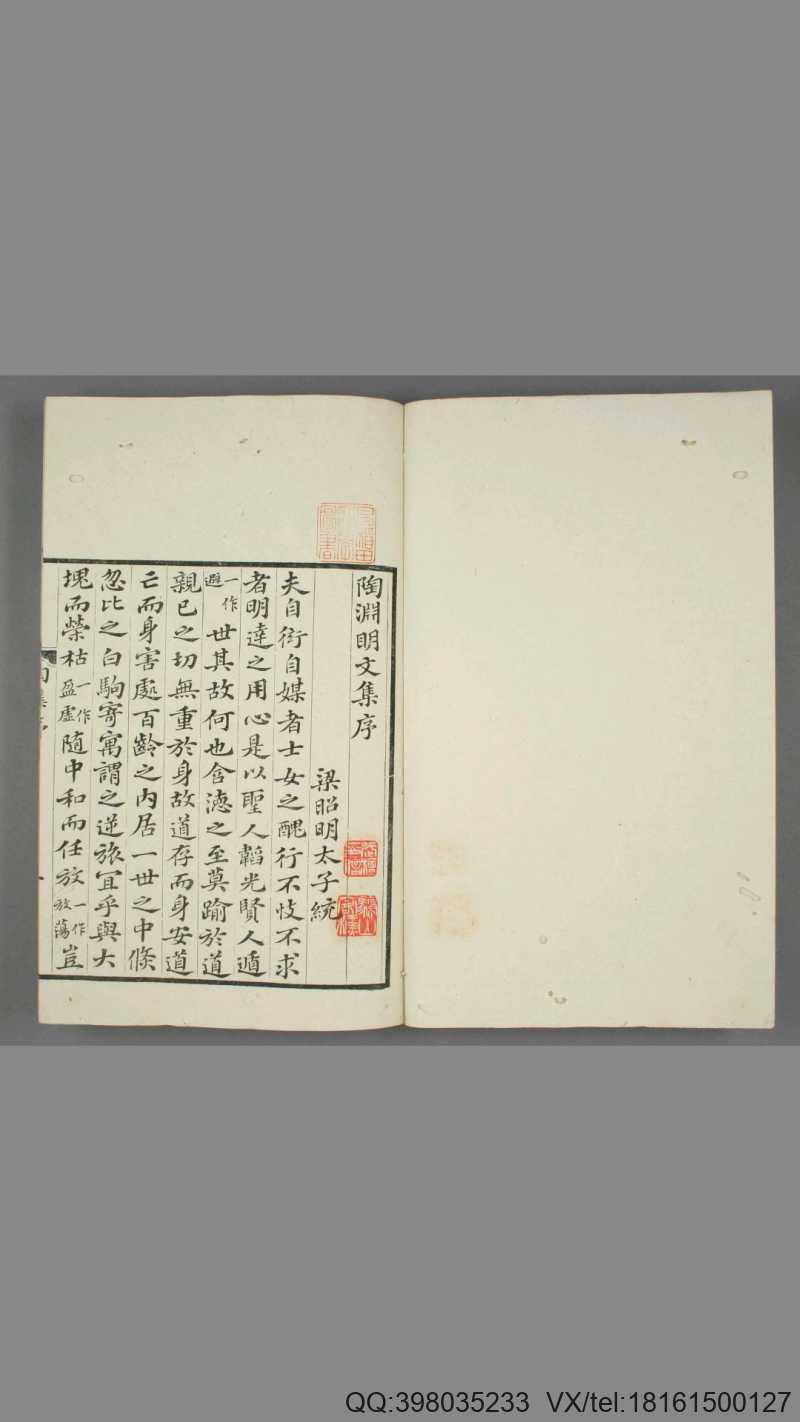 陶淵明文集序
梁昭明太子統
夫自衒自媒者士女之醜行不忮不求
者明達之用心是以聖人韜光賢人遁
一作避世其故何也含德之至莫踰於道
親己之切無重於身故道存而身安道
亡而身害處百齡之内居一世之中倐
忽比之白駒寄寓謂之逆旅宜乎與大
塊而榮枯一作盈虛隨中和而任放一作放蕩豈
QQ:398035233 VX/tel:18161500127